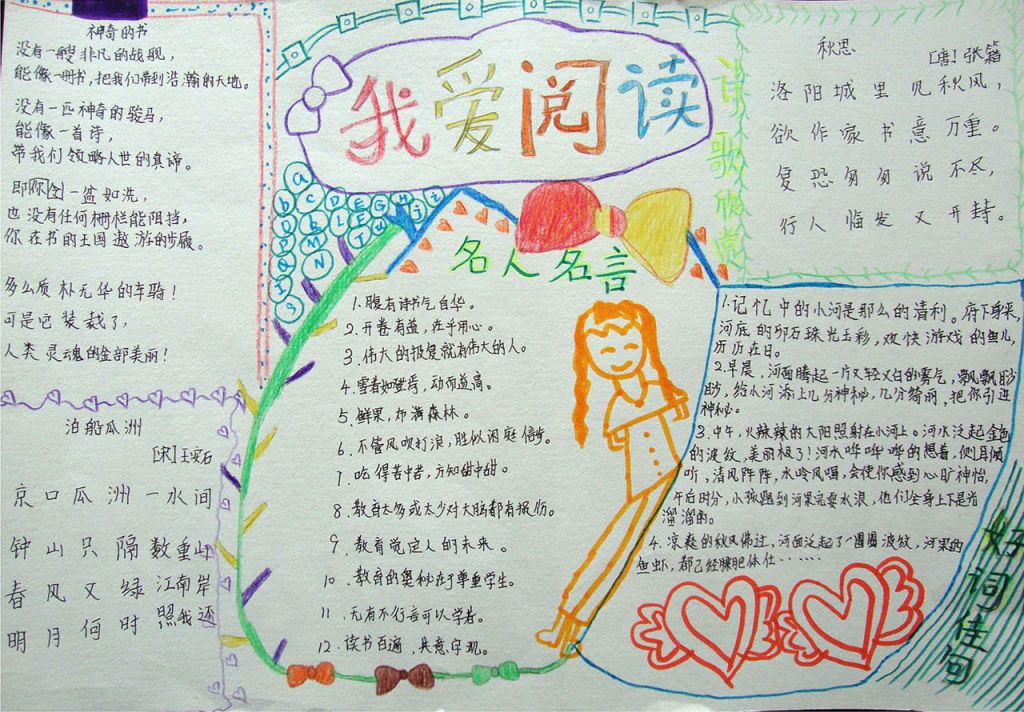 神奇的书
没有一艘非凡的战舰，
能像一册书，把我们带到浩瀚的天地。
没有一匹神奇的骏马，
能像一首诗，
带我们领略人世的真谛。
即你令一盆如洗，
也没有任何栅栏能阻挡，
你在书的王国遨游的步履。
多么质朴无华的车骑！
可是它装裁了，
人类灵魂的全部美丽！
泊船瓜洲
[宋]王安石
京口瓜洲一水间
钟山只隔数重山
春风又绿江南岸
明月何时照我还
我爱阅读
名人名言
1.腹有诗书气自华。
2.开卷有益，在乎用心。
3.伟大的报复就有伟大的人。
5.鲜果，布满森林。
6.不管风吹打浪，胜似闲庭信步。
7.吃得苦中苦，方知甜中甜。
8.教育太多或太少对大脑都有报伤。
9.教育觉定人的未来。
10.教育的奥秘在于尊重学生。
11.无有不行言可以学者。
12.读书百遍，其意字现。
诗歌欣赏
秋思
[唐]张籍
洛阳城里见秋风，
欲作家书意万重。
复恐匆匆说不尽，
行人临发又开封。
1.记忆中的小河是那么的清利。府下身来，
河底的卵石珠光玉彩，欢快游戏的鱼儿，
历历在日。
2.早晨，河面腾起一片又轻又白的雾气，飘飘眇
眇，给小河添上几分神秘，几分绮丽，把你引进
神秘。
3.中午，火辣辣的太阳照射在小河上。河水泛起金色
的波纹，美丽极了！河水哗哗哗的想着，侧耳倾
听，清风阵阵，水吟风唱，会使你感到心旷神怡，
午后时分，小孩跑到河果完耍水浪，他们全身上下是光
溜溜的。
4.凉爽的秋风佛过，河面泛起了一圈圈波纹，河果的
鱼虾，都己经臕肥体仕……
好词佳句